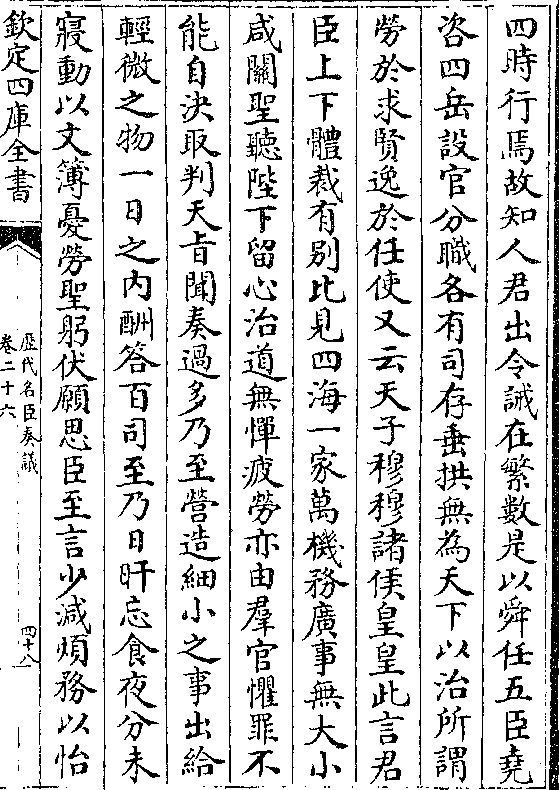 四時行焉故知人君出令誡在繁數是以舜任五臣堯
咨四岳設官分職各有司存垂拱無為天下以治所謂
勞於求賢逸於任使又云天子穆穆諸侯皇皇此言君
臣上下體裁有別比見四海一家萬機務廣事無大小
咸關聖聽陛下留心治道無憚疲勞亦由羣官懼罪不
能自決取判天旨聞奏過多乃至營造細小之事出給
輕微之物一日之内酬答百司至乃日旰忘食夜分未
寢動以文簿憂勞聖躬伏願思臣至言少減煩務以怡
欽定四庫全書
歴代名臣奏議
卷二十六
四十八